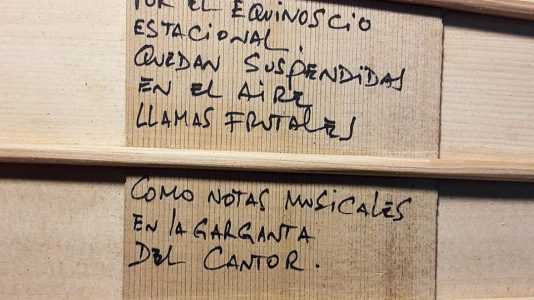 POR EL EQUINOSCIO
ESTACIONAL.
QUEDAN SUSPENDIDAS
EN EL AIRE
LLAMAS FRUTALES
COMO NOTAS MUSICALES
EN LA GARGANTA
DEL CANTOR.